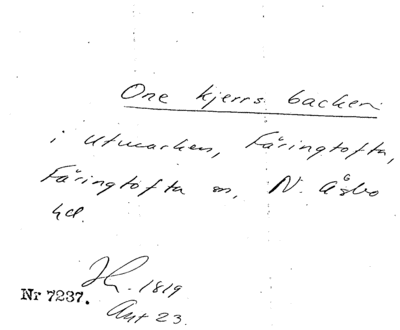 One kjerrs backen
i utmarken, Färingtofta,
Färingtofta sn, N. Åsbo
hd.
1819
Nr 7237.
Ant 23.